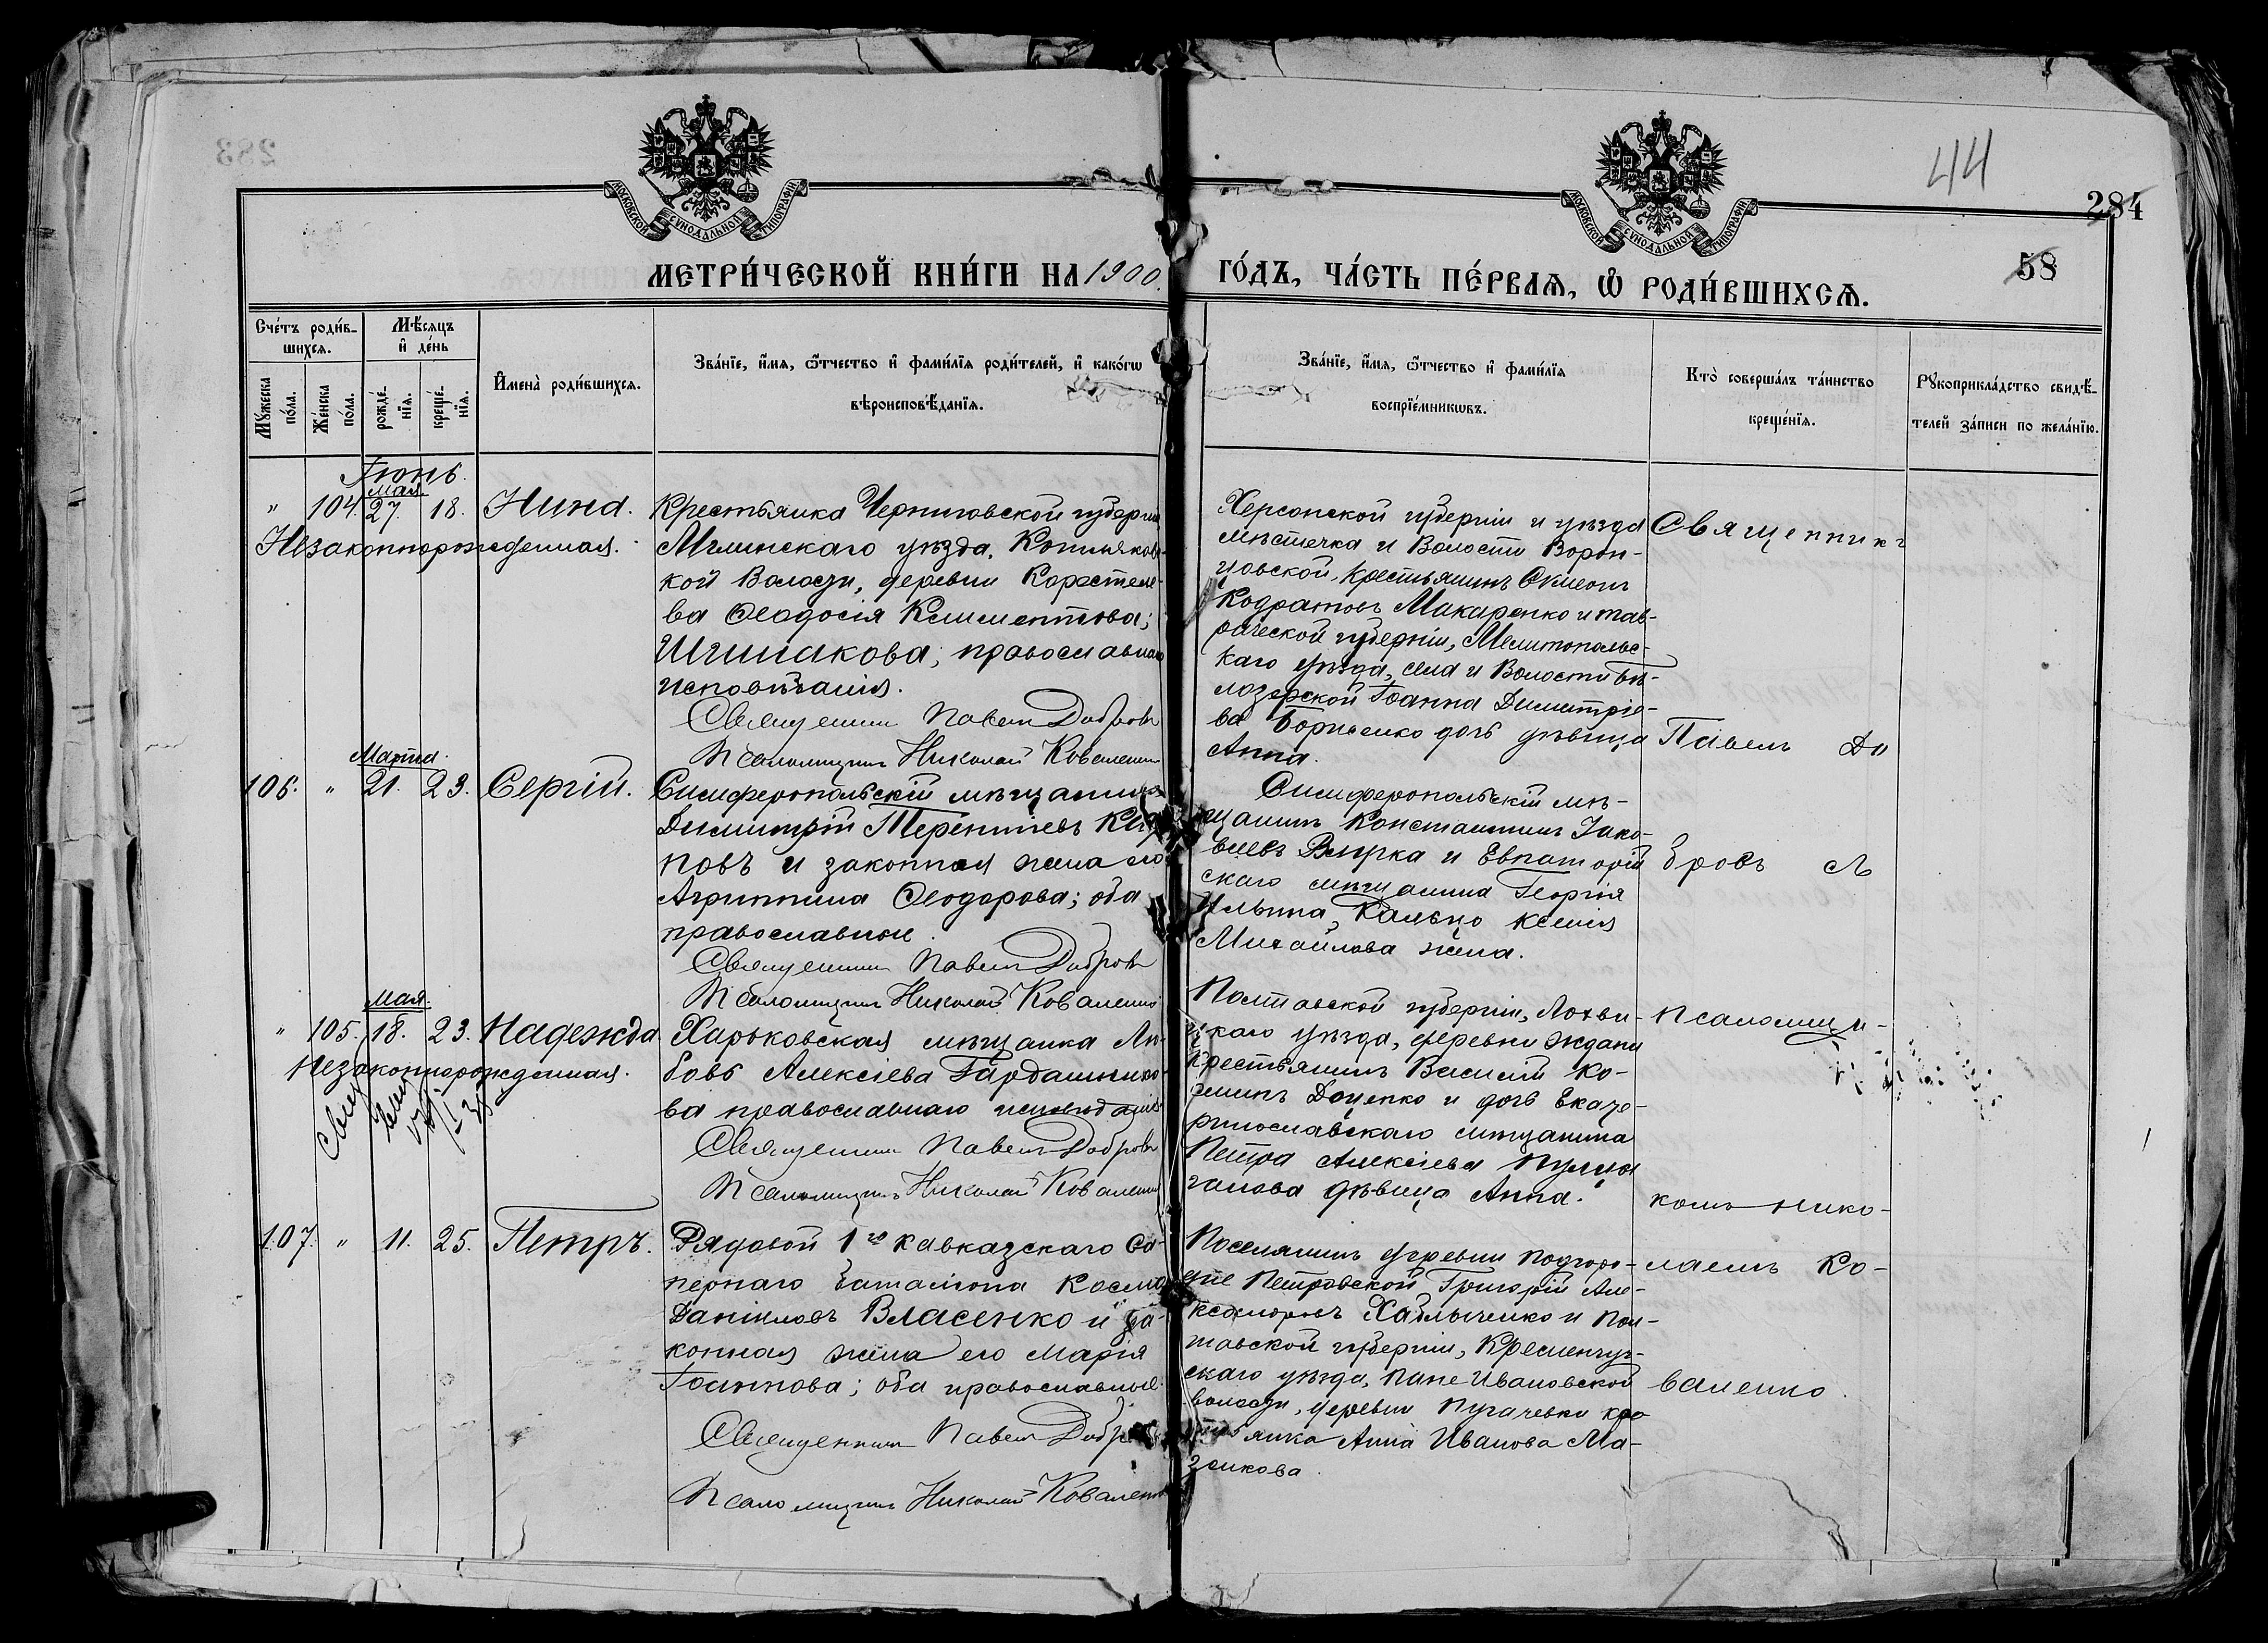 283
44
284
58
МОСКОВСКОЙ СѴНОДАЛЬНОЙ ТИПОГРАФІИ
МОСКОВСКОЙ СѴНОДАЛЬНОЙ ТИПОГРАФІИ
МЕТРИ́ЧЕСКОЙ КНИ́ГИ НА 1900.
ГО́ДЪ, ЧА́СТЬ ПЕ́РВАѦ, Ѽ РОДИ́ВШИХСѦ.
Сче́тъ роди́в-
шихсѧ.
Мѣ́сяцъ
и҆ де́нь
Мꙋ́жеска
по́ла.
Же́нска
по́ла.
рожде́-
нїѧ.
креще́-
нїѧ.
И҆мена̀ роди́вшихсѧ.
Зва́нїе, и҆́мѧ, ѻ҆́тчество и҆ фами́лїѧ роди́телей, и҆ како́гѡ
вѣроисповѣ́данїѧ.
Зва́нїе, и҆́мѧ, ѻ҆́тчество и҆ фами́лїѧ
воспрїе́мникѡвъ.
Кто̀ соверша́лъ та́инство
креще́нїѧ.
Рꙋкоприкла́дство свидѣ́-
телей за́писи по жела́нїю.
Іюнь.
мая
" 104. 27. 18. Нина.
Незаконнорожденная.
Крестьянка Черниговской губерніи
Мглинскаго уѣзда,
кой Волости, деревни
ва Ѳеодосія Климентова;
православнаго
исповѣданія.
Священникъ Павелъ Добровъ
Псаломщикъ Николай Коваленко
Херсонской губерніи и уѣзда
мѣстечка и Волости Ворон-
цовской, Крестьянинъ
Макаренко и Тав-
рической губерніи, Мелитопольс-
каго уѣзда, села и Волости Бѣ-
лозерской Іоанна Димитріе-
ва Борисенко дочь дѣвица
Анна.
Священникъ
Павелъ До
Марта.
106. " 21. 23. Сергій.
Симферопольскій мѣщанинъ
Димитрій Терентіевъ
повъ и законная жена его
Агриппина Ѳеодорова; оба
православные.
Священникъ Павелъ Добровъ
Псаломщикъ Николай Коваленко
Симферопольскій мѣ-
щанинъ Константинъ Іако-
влевъ и Евпаторій
скаго мѣщанина Георгія
Ильина, Ксенія
Михайлова жена.
бровъ съ
мая.
" 105. 18. 23. Надежда
Незаконнорожденная.
Харьковская мѣщанка Лю-
бовь Алексіева Гардашнико-
ва православнаго исповѣданія
Священникъ Павелъ Добровъ
Псаломщикъ Николай Коваленко
Полтавской губерніи, Лохви-
цкаго уѣзда, деревни Жданы
крестьянинъ Василій
Доценко и дочь Екате-
ринославскаго мѣщанина
Петра Алексіева
дѣвица Анна.
псаломщи-
комъ Нико-
107. " 11. 25. Петръ.
Рядовой 1го Кавказскаго Са-
пернаго баталіона Косма
Даніиловъ Власенко и за-
конная жена его Марія
Іоаннова; оба православные.
Священникъ Павелъ Добровъ
Псаломщикъ Николай Коваленко
Поселянинъ деревни Подгоро-
дне Петровской Григорій Але-
и Пол-
тавской губерніи, Кременчуг-
скаго уѣзда, Пане Ивановской
волости, деревни Пугачевки кре-
стьянка Анна Ивановa Ма-
зикова.
лаемъ Ко-
валенко.